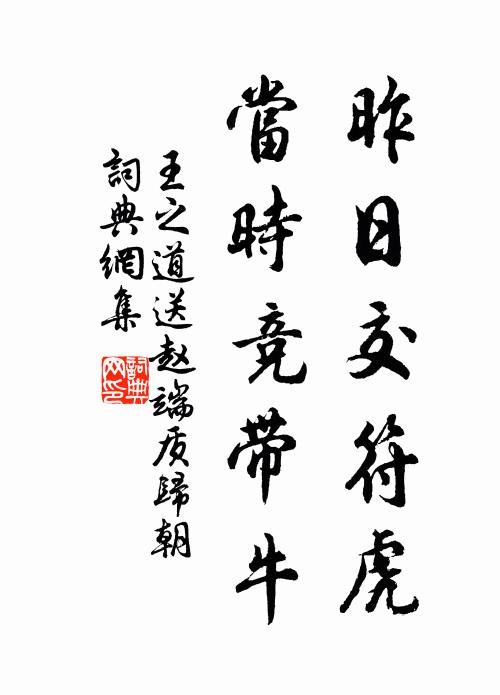 昨日交符虎
當時竞帶牛
王之道送赵端质歸朝
詞典網集
詞典网印